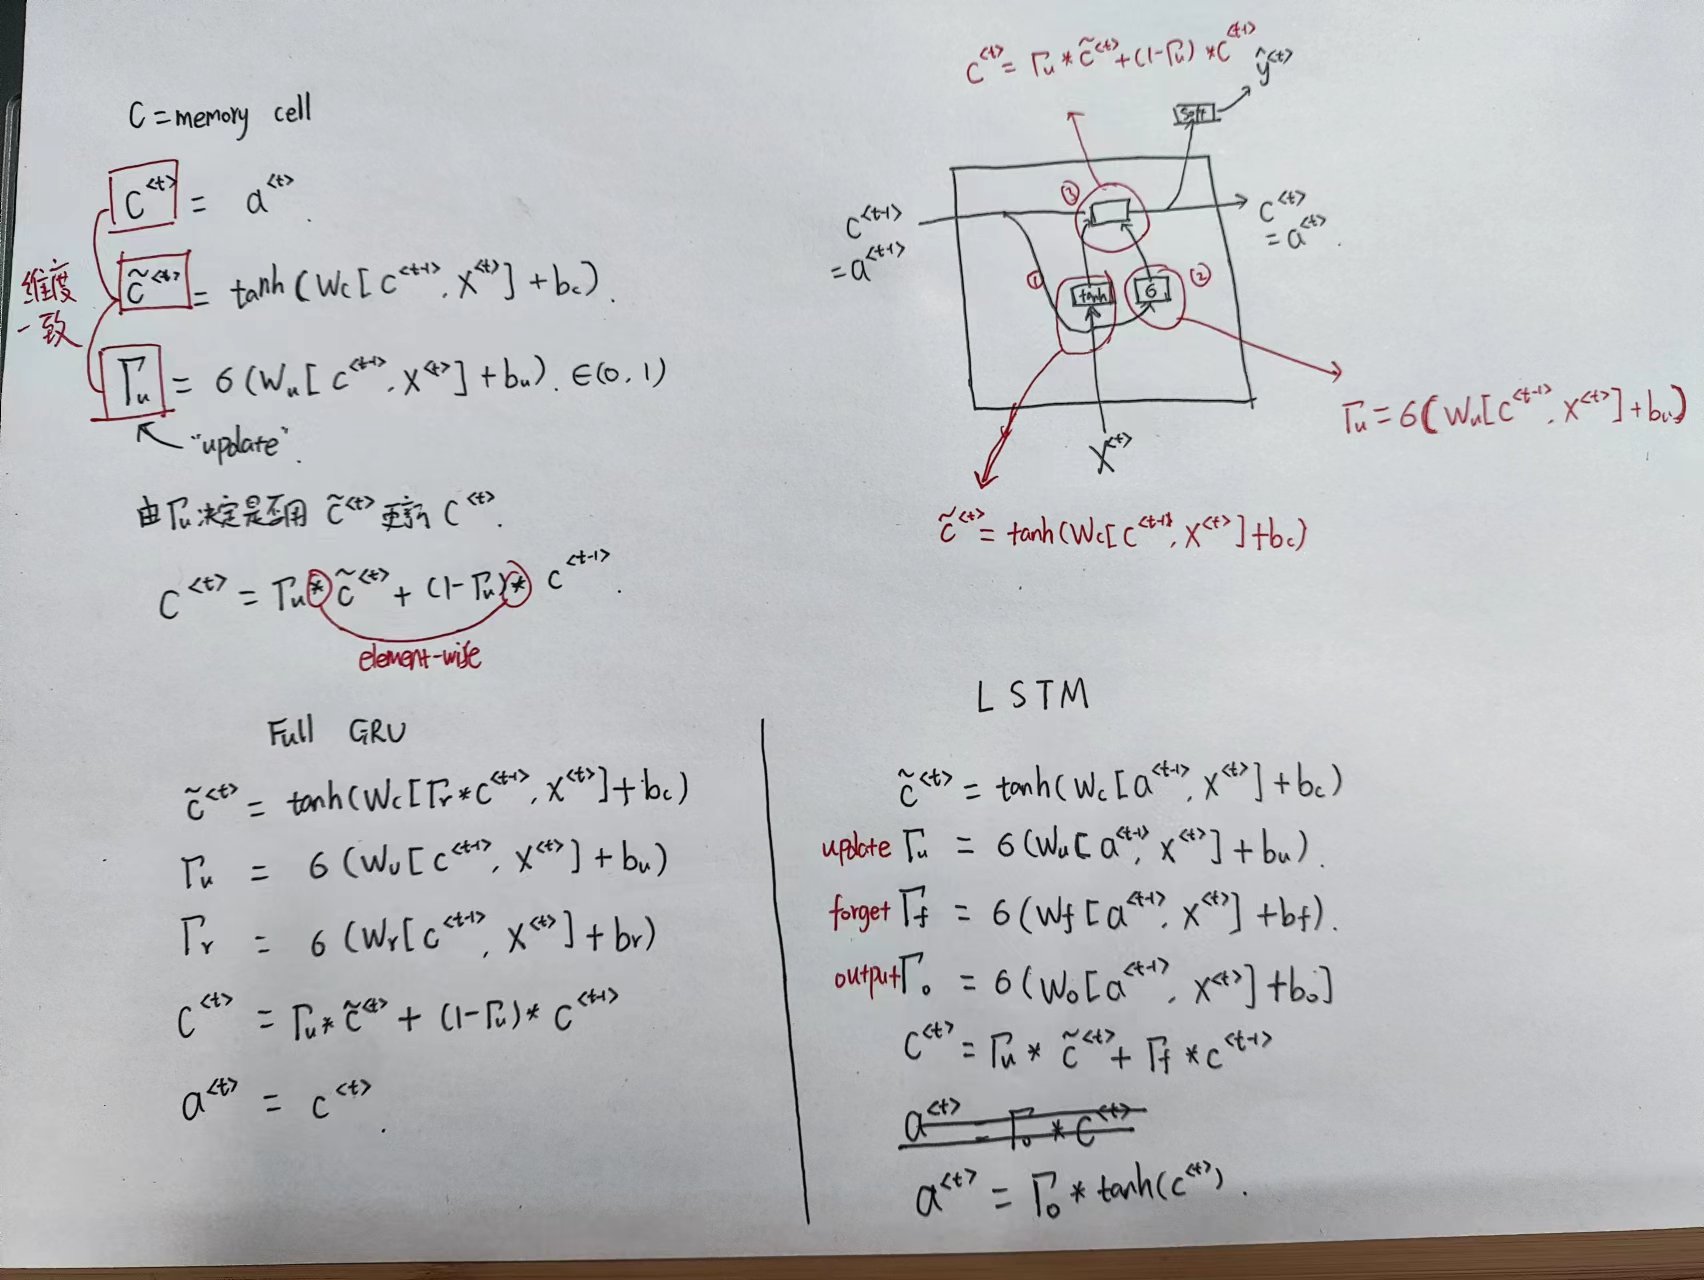 C = memory cell
C^<t> = a^<t>.
维度
一致
c̃^<t> = tanh (Wc [ c^<t-1>, x^<t> ] + bc ).
Γu = б (Wu [ c^<t-1>, x^<t> ] + bu ). ∈(0, 1)
"update".
由Γu决定是否用 c̃^<t> 更新 C^<t>.
C^<t> = Γu * c̃^<t> + (1-Γu) * c^<t-1>.
element-wise
C^<t> = Γu * c̃^<t> + (1-Γu) * C^<t-1>
ŷ^<t>
soft
③
C^<t-1>
= a^<t-1>
C^<t>
= a^<t>.
①
tanh
б
②
x^<t>
Γu = б (Wu[c^<t-1>, x^<t>] + bu)
c̃^<t> = tanh(Wc[c^<t-1>, x^<t>] + bc)
Full GRU
c̃^<t> = tanh(Wc[Γr * c^<t-1>, x^<t>] + bc)
Γu = б (Wu[c^<t-1>, x^<t>] + bu)
Γr = б (Wr[c^<t-1>, x^<t>] + br)
C^<t> = Γu * c̃^<t> + (1-Γu) * C^<t-1>
a^<t> = c^<t>.
LSTM
c̃^<t> = tanh(Wc [a^<t-1>, x^<t>] + bc)
update Γu = б(Wu[a^<t-1>, x^<t>] + bu).
forget Γf = б(Wf [a^<t-1>, x^<t>] + bf).
output Γo = б(Wo[a^<t-1>, x^<t>] + bo]
C^<t> = Γu * c̃^<t> + Γf * c^<t-1>
a^<t> = Γo * C^<t>
a^<t> = Γo * tanh(c^<t>).